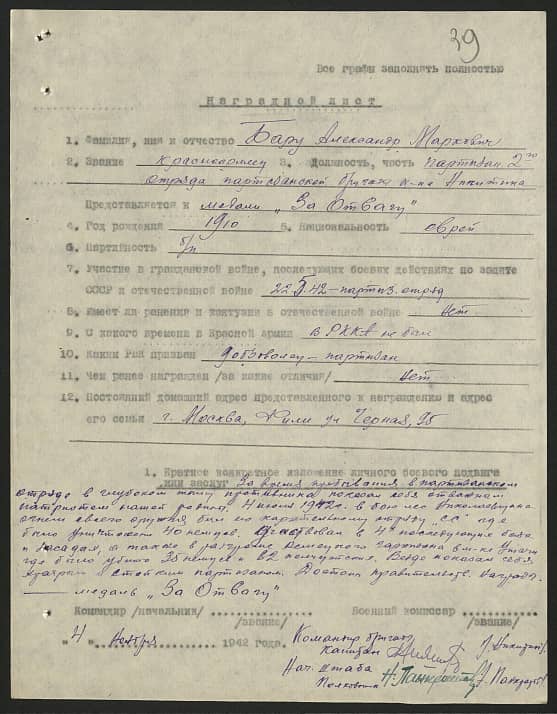 39
Все графы заполнять полностью
Наградной лист
1. Фамилия, имя и отчество Бару Александр Маркович
2. Звание красноармеец 3. Должность, часть партизан 2го
отряда партизанской бригады к-на Никитина
Представляется к медали „За Отвагу"
4. Год рождения 1910 5. Национальность еврей
6. Партийность б/п
7. Участие в гражданской войне, последующих боевых действиях по защите
СССР и отечественной войне 22.V.42 – партиз. отряд
8. Имеет ли ранения и контузии в отечественной войне нет
9. С какого времени в Красной армии в РККА не был
10. Каким РВК призван доброволец – партизан
11. Чем ранее награжден /за какие отличия/ нет
12. Постоянный домашний адрес представленного к награждению и адрес
его семьи г. Москва, Фили ул Черная, 95
1. Краткое конкретное изложение личного боевого подвига
или заслуг За время пребывания в партизанском
отряде в глубоком тылу противника показал себя отважным
патриотом нашей родины. 4 июля 1942г. в бою
огнем своего оружия бил по карательному отряду „СС" где
было уничтожено 40 немцев. Участвовал в 4х последующих боях
и засадах, а также в разгроме немецкого гарнизона в
где было убито 35 немцев и 2 Везде показал себя
и стойким партизаном. Достоин правительств. награды
— медаль „За Отвагу"
Командир /начальник/ Военный комиссар
/звание/ /звание/
"4" ноября 1942 года.
Командир бригады
капитан /Никитин/
Нач. штаба
Полковник